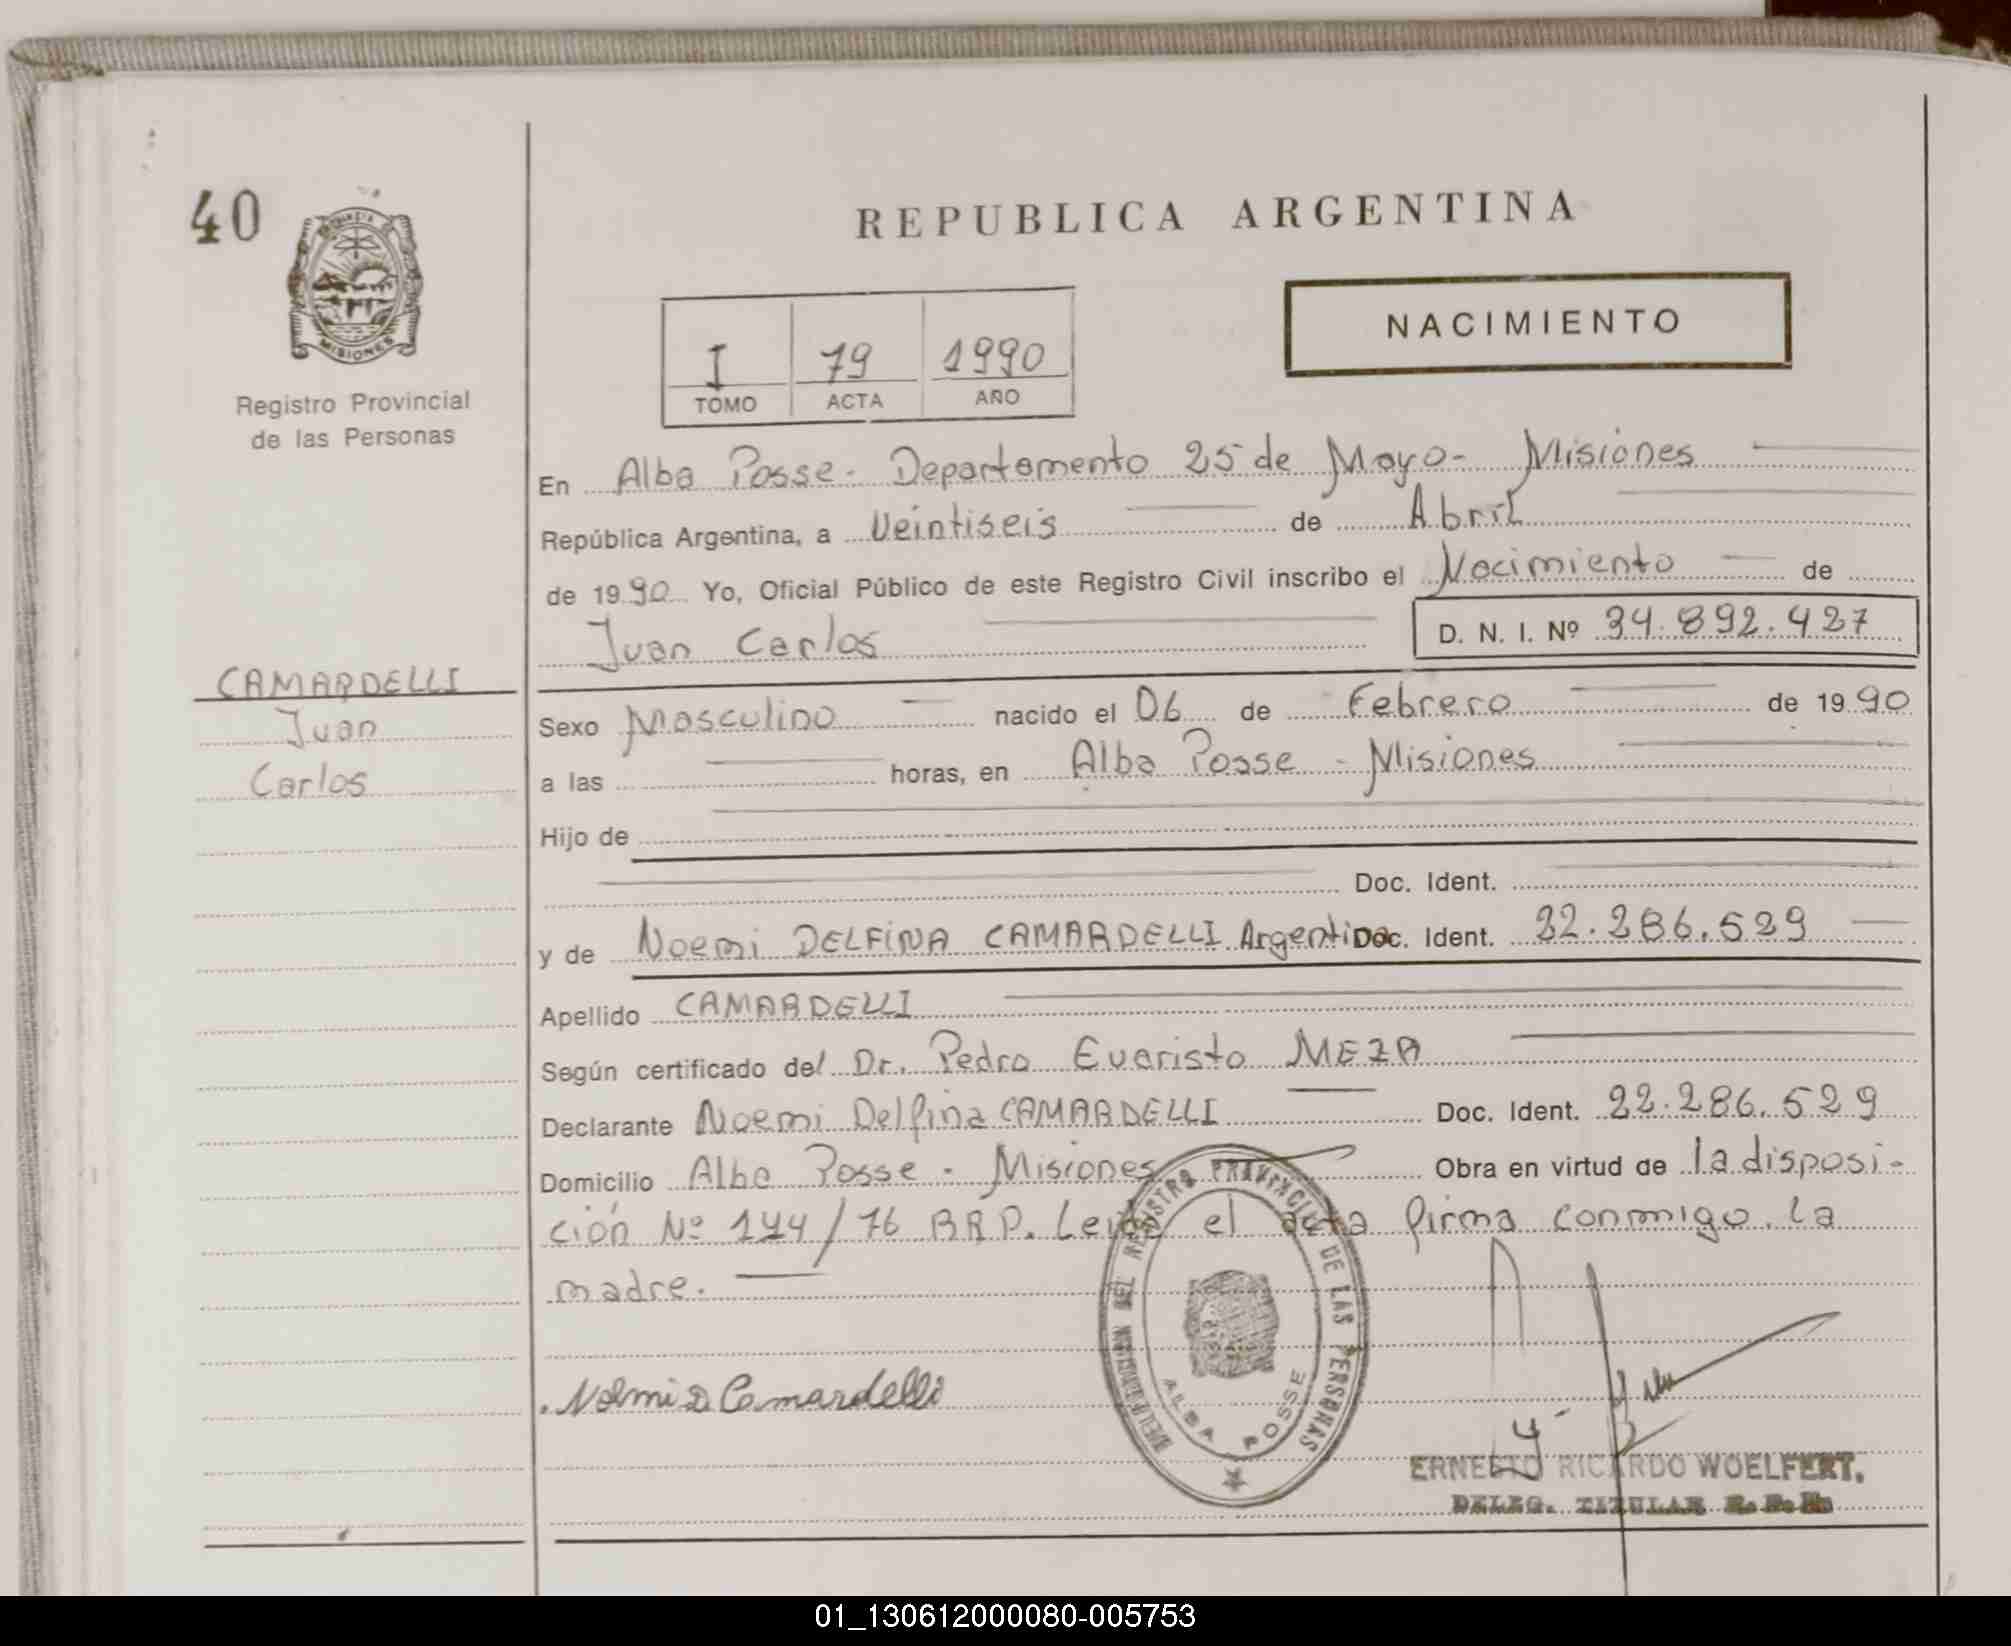 40
PROVINCIA
MISIONES
Registro Provincial
de las Personas
CAMARDELLI
Juan
Carlos
REPUBLICA ARGENTINA
NACIMIENTO
I 79 1990
TOMO ACTA AÑO
En Alba Posse - Departamento 25 de Mayo - Misiones
República Argentina, a Veintiseis de Abril
de 1990 Yo, Oficial Público de este Registro Civil inscribo el Nacimiento de
Juan Carlos D. N. I. Nº 34.892.427
Sexo Masculino nacido el 06 de Febrero de 1990
a las horas, en Alba Posse - Misiones
Hijo de
Doc. Ident.
y de Noemi DELFINA CAMARDELLI Argentina Doc. Ident. 22.286.529
Apellido CAMARDELLI
Según certificado del Dr. Pedro Evaristo MEZA
Declarante Noemi Delfina CAMARDELLI Doc. Ident. 22.286.529
Domicilio Alba Posse - Misiones Obra en virtud de la disposi-
ción Nº 144/76 RRP. Leida el acta firma conmigo la
madre.
Noemi D Camardelli
REGISTRO PROVINCIAL DE LAS PERSONAS
ALBA POSSE
ERNESTO RICARDO WOELFERT.
DELEG. TITULAR R. P. P.
01_130612000080-005753